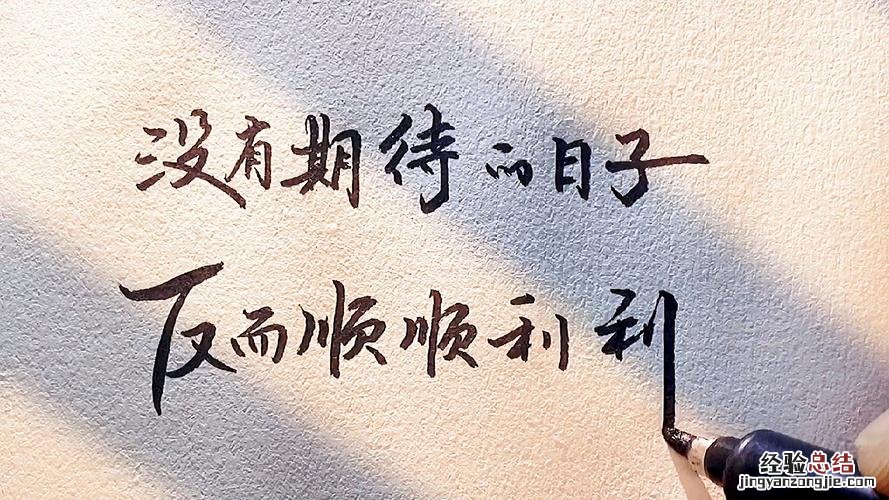 没有期待的日子
反而顺顺利利
经验总结
jingyanzongjie.com